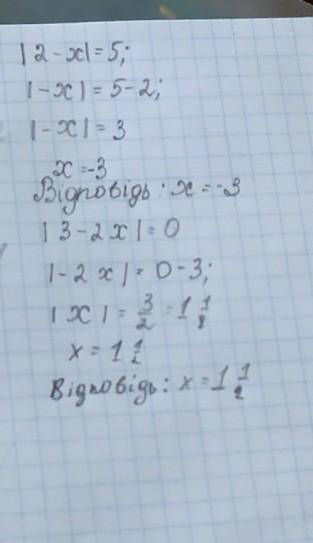 |2-x|=5;
|-x|=5-2;
|-x|=3
x=-3
Відповідь: x=-3
|3-2x|=0
|-2x|=0-3;
|x|=3/2=1 1/2
x=1 1/2
Відповідь: x=1 1/2